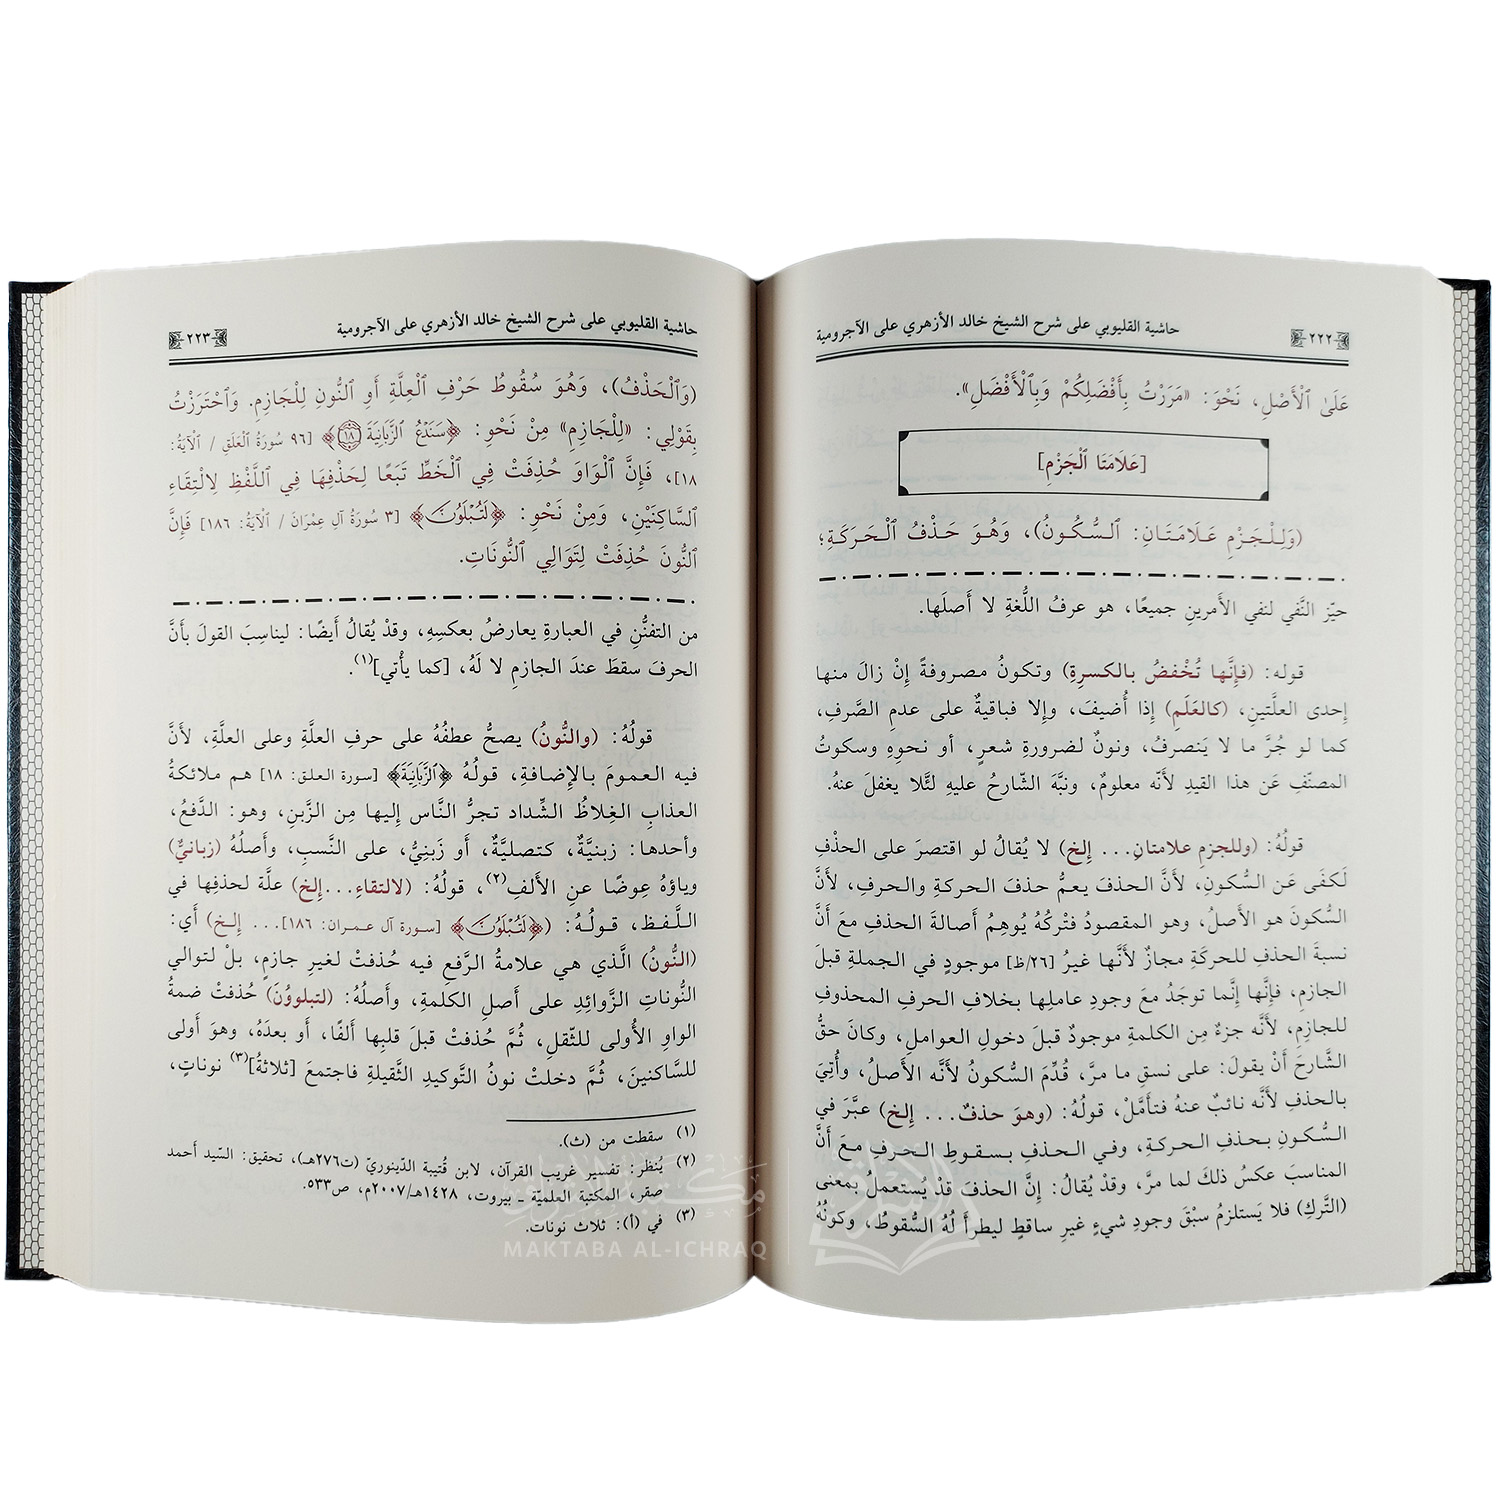 حاشية القليوبي على شرح الشيخ خالد الأزهري على الآجرومية
٢٢٢
عَلَىٰ ٱلْأَصْلِ، نَحْوَ: «مَرَرْتُ بِأَفْضَلِكُمْ وَبِٱلْأَفْضَلِ».
[عَلَامَتَا ٱلْجَزْمِ]
(وَلِلْجَزْمِ عَلَامَتَانِ: ٱلسُّكُونُ)، وَهُوَ حَذْفُ ٱلْحَرَكَةِ؛
حيّز النَّفي لنفي الأَمرينِ جميعًا، هو عرفُ اللُّغةِ لا أَصلَها.
قوله: (فإِنَّها تُخْفضُ بالكسرةِ) وتكونُ مصروفةً إِنْ زالَ منها
إِحدى العلَّتينِ، (كالعَلَمِ) إِذا أُضيفَ، وإِلا فباقيةٌ على عدمِ الصَّرفِ،
كما لو جُرَّ ما لا يَنصرفُ، ونونٌ لضرورةِ شعرٍ، أو نحوِهِ وسكوتُ
المصنّفِ عَن هذا القيدِ لأَنّه معلومٌ، ونبَّهَ الشّارحُ عليهِ لئَلّا يغفلَ عنهُ.
قولُهُ: (وللجزمِ علامتانِ... إِلخ) لا يُقالُ لو اقتصرَ على الحذْفِ
لَكفَى عَن السُّكونِ، لأَنَّ الحذفَ يعمُّ حذفَ الحركةِ والحرفِ، لأَنَّ
السُّكونَ هو الأَصلُ، وهو المقصودُ فتْركُهُ يُوهِمُ أصالةَ الحذفِ معَ أنَّ
نسبةَ الحذفِ للحركةِ مجازٌ لأَنَّها غيرُ [٢٦/ظ] موجودٍ في الجملةِ قبلَ
الجازمِ، فإِنَّها إِنَّما توجَدُ معَ وجودِ عاملِها بخلافِ الحرفِ المحذوفِ
للجازِمِ، لأَنَّه جزءٌ مِن الكلمةِ موجودٌ قبلَ دخولِ العواملِ، وكانَ حقُّ
الشَّارحَ أَنْ يقولَ: على نسقِ ما مرَّ، قُدِّمَ السُّكونُ لأَنَّه الأَصلُ، وأُتِيَ
بالحذفِ لأَنَّه نائبٌ عنهُ فتأَمَّلْ، قولُهُ: (وهوَ حذفٌ... إِلخ) عبَّرَ في
السُّكونِ بحذفِ الحركةِ، وفي الحذفِ بسقوطِ الحرفِ معَ أَنَّ
المناسبَ عكسُ ذلكَ لما مرَّ، وقدْ يُقالُ: إِنَّ الحذفَ قدْ يُستعملُ بمعنى
(التَّركِ) فلا يَستلزمُ سبْقَ وجودِ شيءٍ غيرِ ساقطٍ ليطرأَ لَهُ السُّقوطُ، وكونُهُ
حاشية القليوبي على شرح الشيخ خالد الأزهري على الآجرومية
٢٢٣
(وَٱلْحَذْفُ)، وَهُوَ سُقُوطُ حَرْفِ ٱلْعِلَّةِ أَوِ ٱلنُّونِ لِلْجَازِمِ. وَٱحْتَرَزْتُ
بِقَوْلِي: «لِلْجَازِمِ» مِنْ نَحْوِ: ﴿سَنَدْعُ ٱلزَّبَانِيَةَ ١٨﴾ [٩٦ سُورَةُ ٱلْعَلَقِ / ٱلْآيَةُ:
١٨]، فَإِنَّ ٱلْوَاوَ حُذِفَتْ فِي ٱلْخَطِّ تَبَعًا لِحَذْفِهَا فِي ٱللَّفْظِ لِٱلْتِقَاءِ
ٱلسَّاكِنَيْنِ، وَمِنْ نَحْوِ: ﴿لَتُبْلَوُنَّ﴾ [٣ سُورَةُ آلِ عِمْرَانَ / ٱلْآيَةُ: ١٨٦] فَإِنَّ
ٱلنُّونَ حُذِفَتْ لِتَوَالِي ٱلنُّونَاتِ.
من التفنُّنِ في العبارةِ يعارضُ بعكسِهِ، وقدْ يُقالُ أَيضًا: ليناسِبَ القولَ بأنَّ
الحرفَ سقطَ عندَ الجازمِ لا لَهُ، [كما يأْتي](١).
قولُهُ: (والنُّونُ) يصحُّ عطفُهُ على حرفِ العلةِ وعلى العلةِ، لأَنَّ
فيه العمومَ بالإِضافةِ، قولُهُ ﴿ٱلزَّبَانِيَةَ﴾ [سورة العلق: ١٨] هم ملائكةُ
العذابِ الغِلاظُ الشِّداد تجرُّ النَّاس إِليها مِن الزَّبنِ، وهو: الدَّفعُ،
وأحدها: زبنيَّةٌ، كتصليةٌ، أَو زَبنِيٌّ، على النَّسبِ، وأَصلُهُ (زبانيٌّ)
وياؤهُ عِوضًا عنِ الأَلفِ(٢)، قولُهُ: (لالتقاءِ...إِلخ) علّة لحذفِها في
اللَّفظِ، قولُهُ: (﴿لَتُبْلَوُنَّ﴾ [سورة آل عمران: ١٨٦]... إِلخ) أَي:
(النُّونُ) الَّذي هي علامةُ الرَّفعِ فيه حُذفتْ لغيرِ جازمٍ، بلْ لتوالي
النُّوناتِ الزَّوائدِ على أَصلِ الكلمةِ، وأَصلُهُ: (لتبلووُنَ) حُذفتْ ضمةُ
الواوِ الأُولى للثّقلِ، ثُمَّ حُذفتْ قبلَ قلبِها أَلفًا، أَو بعدَهُ، وهوَ أَولى
للسَّاكنينَ، ثُمَّ دخلتْ نونُ التَّوكيدِ الثَّقيلةِ فاجتمعَ [ثلاثةُ](٣) نوناتٍ،
(١) سقطت من (ث).
(٢) يُنظر: تفسير غريب القرآن، لابن قُتيبة الدِّينوريّ (ت٢٧٦هـ)، تحقيق: السّيد أحمد
صقر، المكتبة العلميّة ـ بيروت، ١٤٢٨هـ/٢٠٠٧م، ص٥٣٣.
(٣) في (أ): ثلاث نونات.
مكتبة الإشراق
MAKTABA AL-ICHRAQ